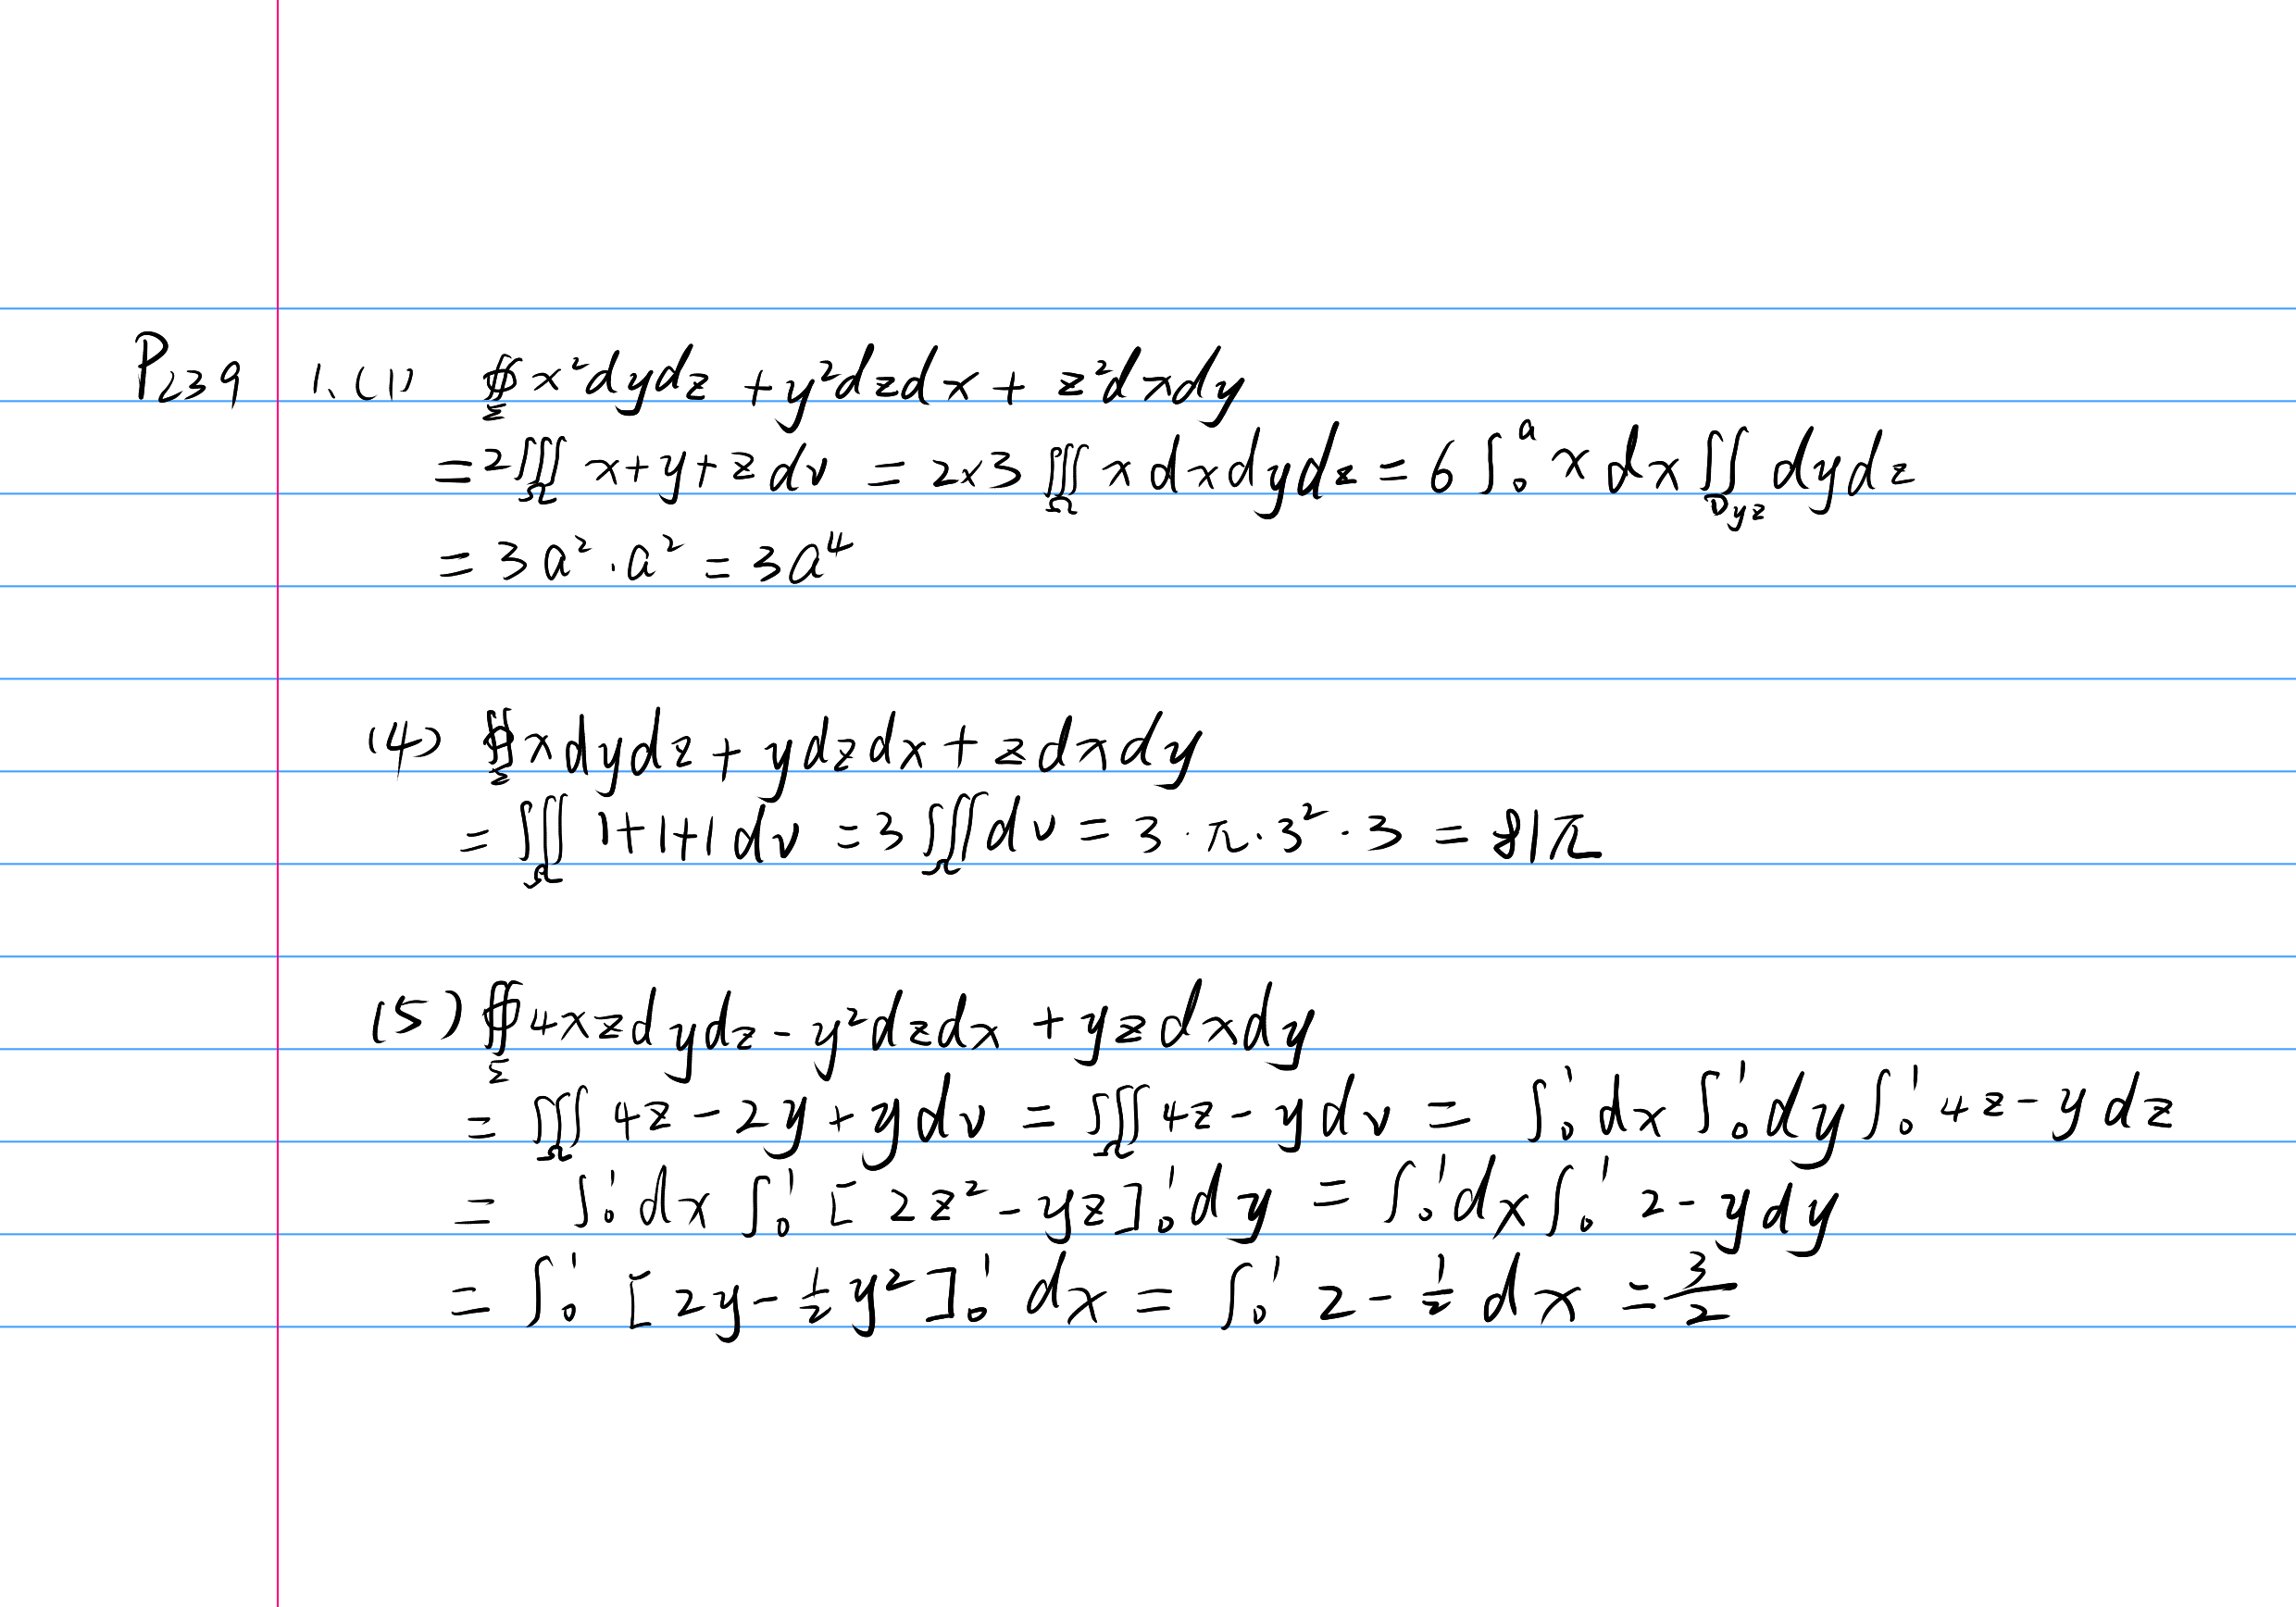 P239 1.(1) ∯_Σ x²dydz + y²dzdx + z²dxdy
= 2∭_Ω x+y+z dv = 2×3 ∭_Ω x dxdydz = 6 ∫₀^a x dx ∬_{Dyz} dydz
= 3a²·a² = 3a⁴
(4) ∯_Σ xdydz + ydzdx + zdxdy
= ∭_Ω 1+1+1 dv = 3∭_Ω dv = 3·π·3²·3 = 81π
(5) ∯_Σ 4xzdydz - y²dzdx + yzdxdy
= ∭_Ω 4z-2y+y dv = ∭_Ω 4z-y dv = ∫₀¹ dx ∫₀¹ dy ∫₀¹ 4z-y dz
= ∫₀¹ dx ∫₀¹ [2z²-yz]₀¹ dy = ∫₀¹ dx ∫₀¹ 2-y dy
= ∫₀¹ [2y-½y²]₀¹ dx = ∫₀¹ 2-½ dx = 3/2